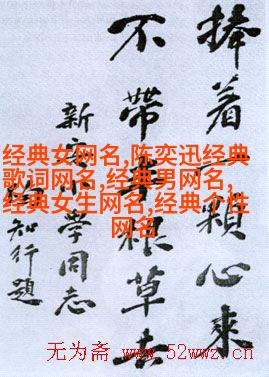 捧着一顆心來
不帶半根草去
新安小學同志
知行題
经典女网名,陈奕迅经典
歌词网名,经典男网名,
经典女生网名,经典个性
网名
无为斋 www.52wwz.cn